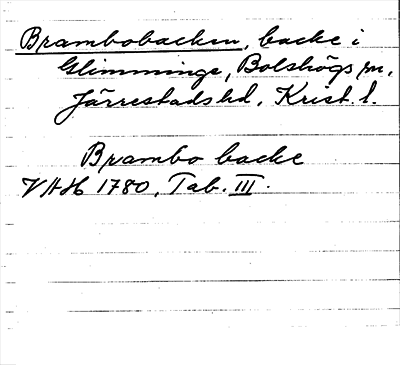 Brambobacken, backe i
Glimminge, Bolshögs sn,
Järrestads hd, Krist. l.
Brambo backe
VAH 1780, Tab. III.